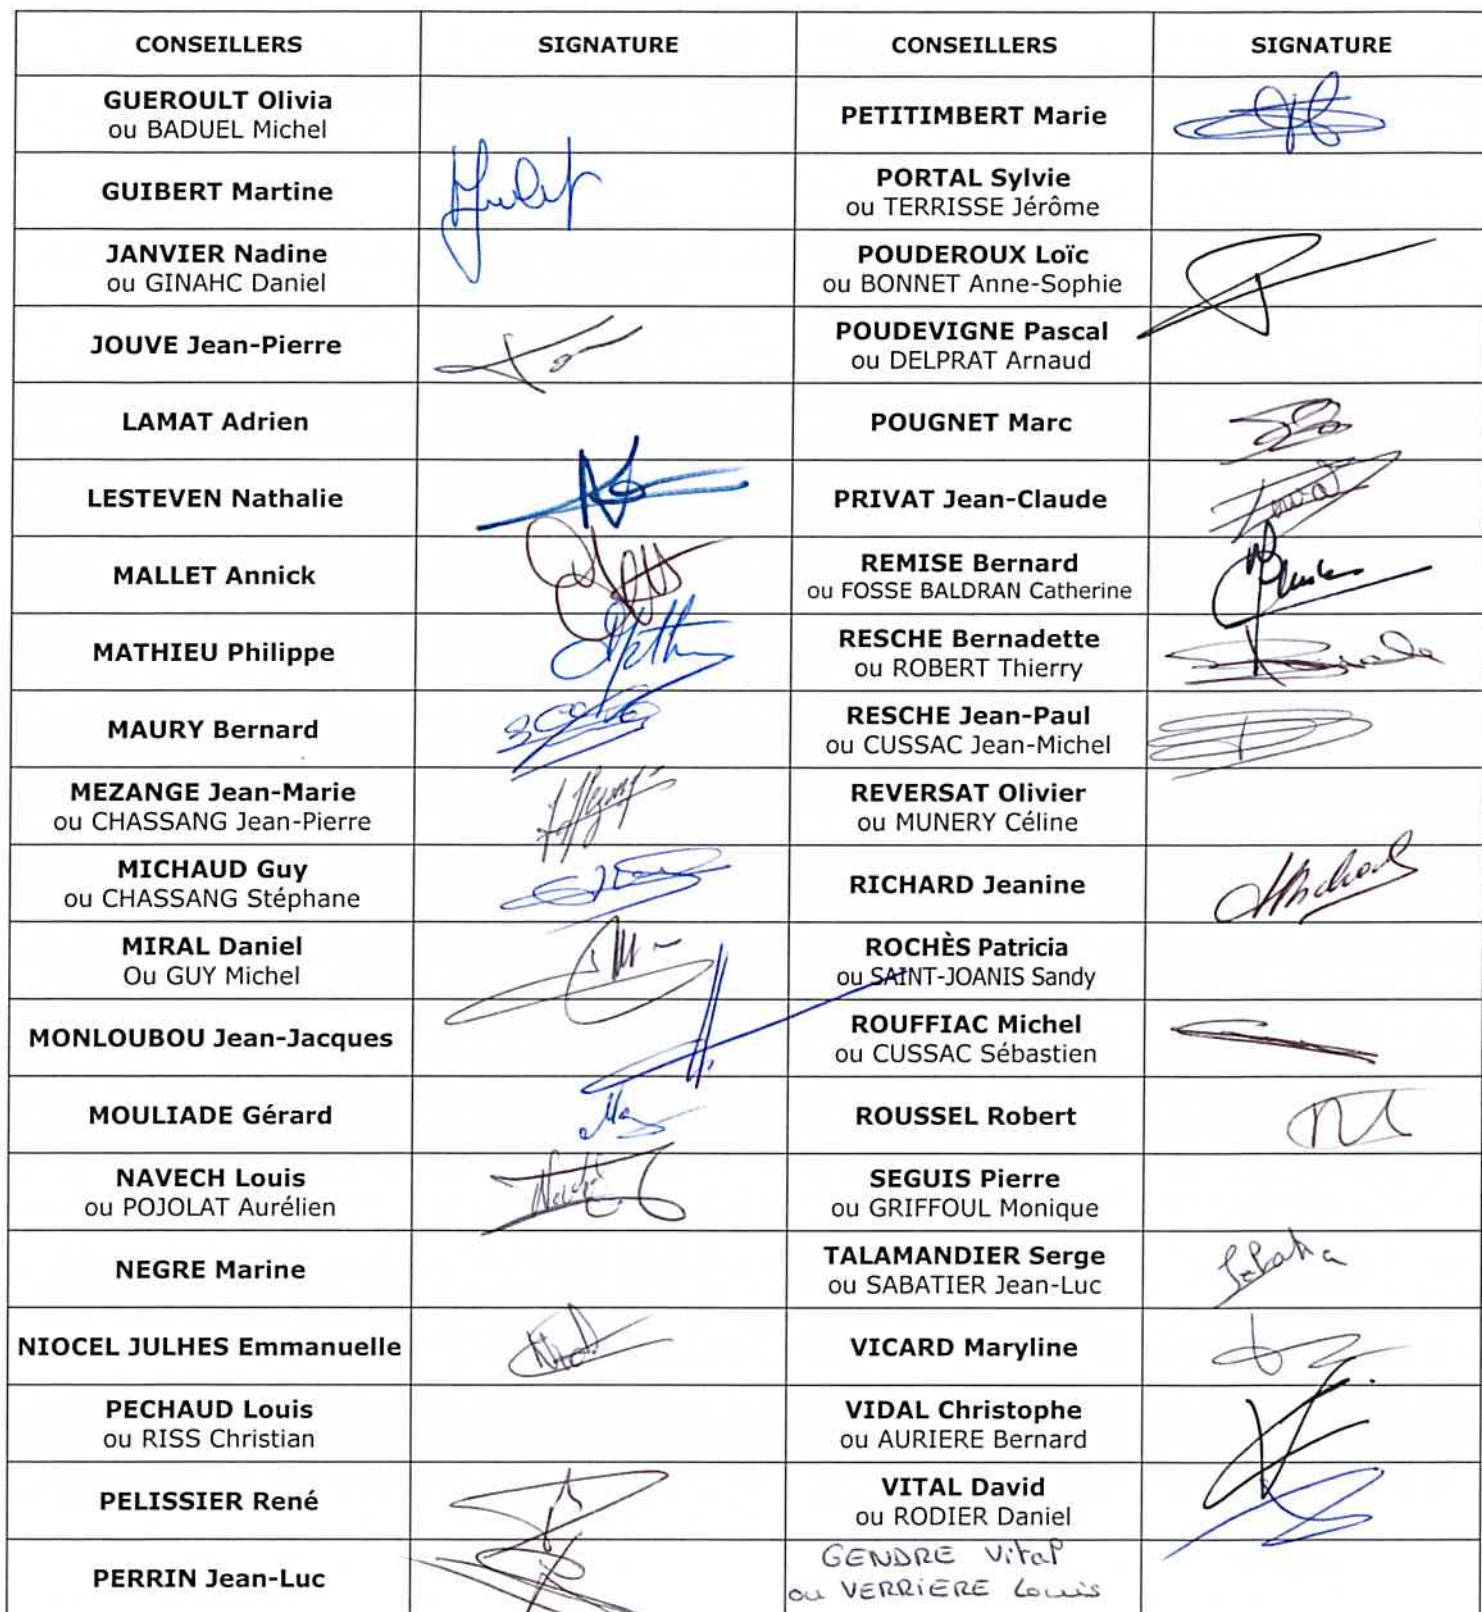 CONSEILLERS SIGNATURE CONSEILLERS SIGNATURE
GUEROULT Olivia
ou BADUEL Michel
PETITIMBERT Marie
GUIBERT Martine
PORTAL Sylvie
ou TERRISSE Jérôme
JANVIER Nadine
ou GINAHC Daniel
POUDEROUX Loïc
ou BONNET Anne-Sophie
JOUVE Jean-Pierre
POUDEVIGNE Pascal
ou DELPRAT Arnaud
LAMAT Adrien
POUGNET Marc
LESTEVEN Nathalie
PRIVAT Jean-Claude
MALLET Annick
REMISE Bernard
ou FOSSE BALDRAN Catherine
MATHIEU Philippe
RESCHE Bernadette
ou ROBERT Thierry
MAURY Bernard
RESCHE Jean-Paul
ou CUSSAC Jean-Michel
MEZANGE Jean-Marie
ou CHASSANG Jean-Pierre
REVERSAT Olivier
ou MUNERY Céline
MICHAUD Guy
ou CHASSANG Stéphane
RICHARD Jeanine
MIRAL Daniel
Ou GUY Michel
ROCHÈS Patricia
ou SAINT-JOANIS Sandy
MONLOUBOU Jean-Jacques
ROUFFIAC Michel
ou CUSSAC Sébastien
MOULIADE Gérard
ROUSSEL Robert
NAVECH Louis
ou POJOLAT Aurélien
SEGUIS Pierre
ou GRIFFOUL Monique
NEGRE Marine
TALAMANDIER Serge
ou SABATIER Jean-Luc
NIOCEL JULHES Emmanuelle
VICARD Maryline
PECHAUD Louis
ou RISS Christian
VIDAL Christophe
ou AURIERE Bernard
PELISSIER René
VITAL David
ou RODIER Daniel
PERRIN Jean-Luc
GENDRE Vital
ou VERRIERE Louis